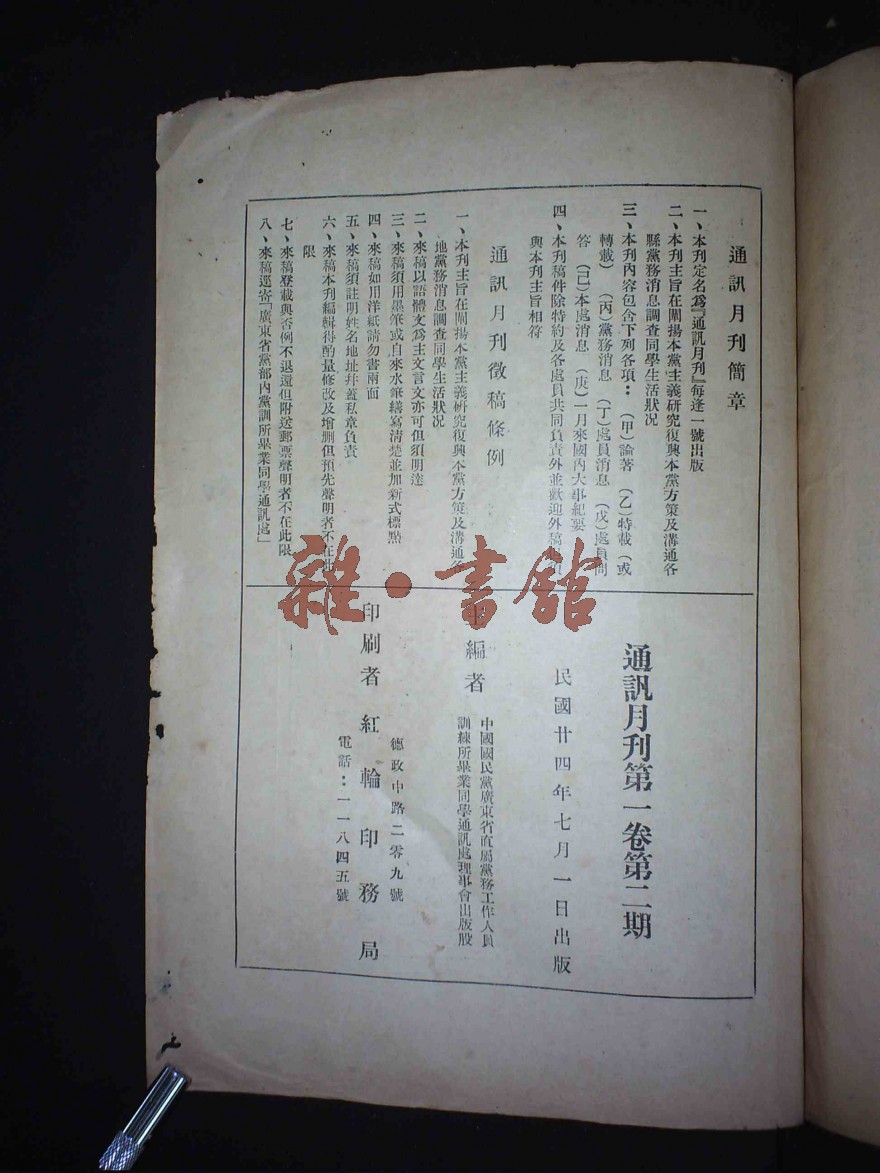 通訊月刊簡章
一、本刊定名爲『通訊月刊』每逢一號出版
二、本刊主旨在闡揚本黨主義硏究復興本黨方策及溝通各
縣黨務消息調查同學生活狀况
三、本刊內容包含下列各項：（甲）論著（乙）特載（或
轉載）（丙）黨務消息（丁）處員消息（戊）處員問
答（己）本處消息（庚）一月來國內大事紀要
四、本刊稿件除特約及各處員共同負責外並歡迎外稿
與本刊主旨相符
通訊月刊徵稿條例
一、本刊主旨在闡揚本黨主義硏究復興本黨方策及溝通各
地黨務消息調查同學生活狀况
二、來稿以語體文爲主文言文亦可但須明達
三、來稿須用墨筆或自來水筆繕寫清楚並加新式標點
四、來稿如用洋紙請勿書兩面
五、來稿須註明姓名地址幷蓋私章負責
六、來稿本刊編輯得酌量修改及增删但預先聲明者不在此
限
七、來稿登載與否例不退還但附送郵票聲明者不在此限
八、來稿逕寄「廣東省黨部內黨訓所畢業同學通訊處」
通訊月刊第一卷第二期
民國廿四年七月一日出版
編者
中國國民黨廣東省直屬黨務工作人員
訓練所畢業同學通訊處理事會出版股
印刷者紅輪印務局
德政中路二零九號
電話：一一八四五號
雜·書館